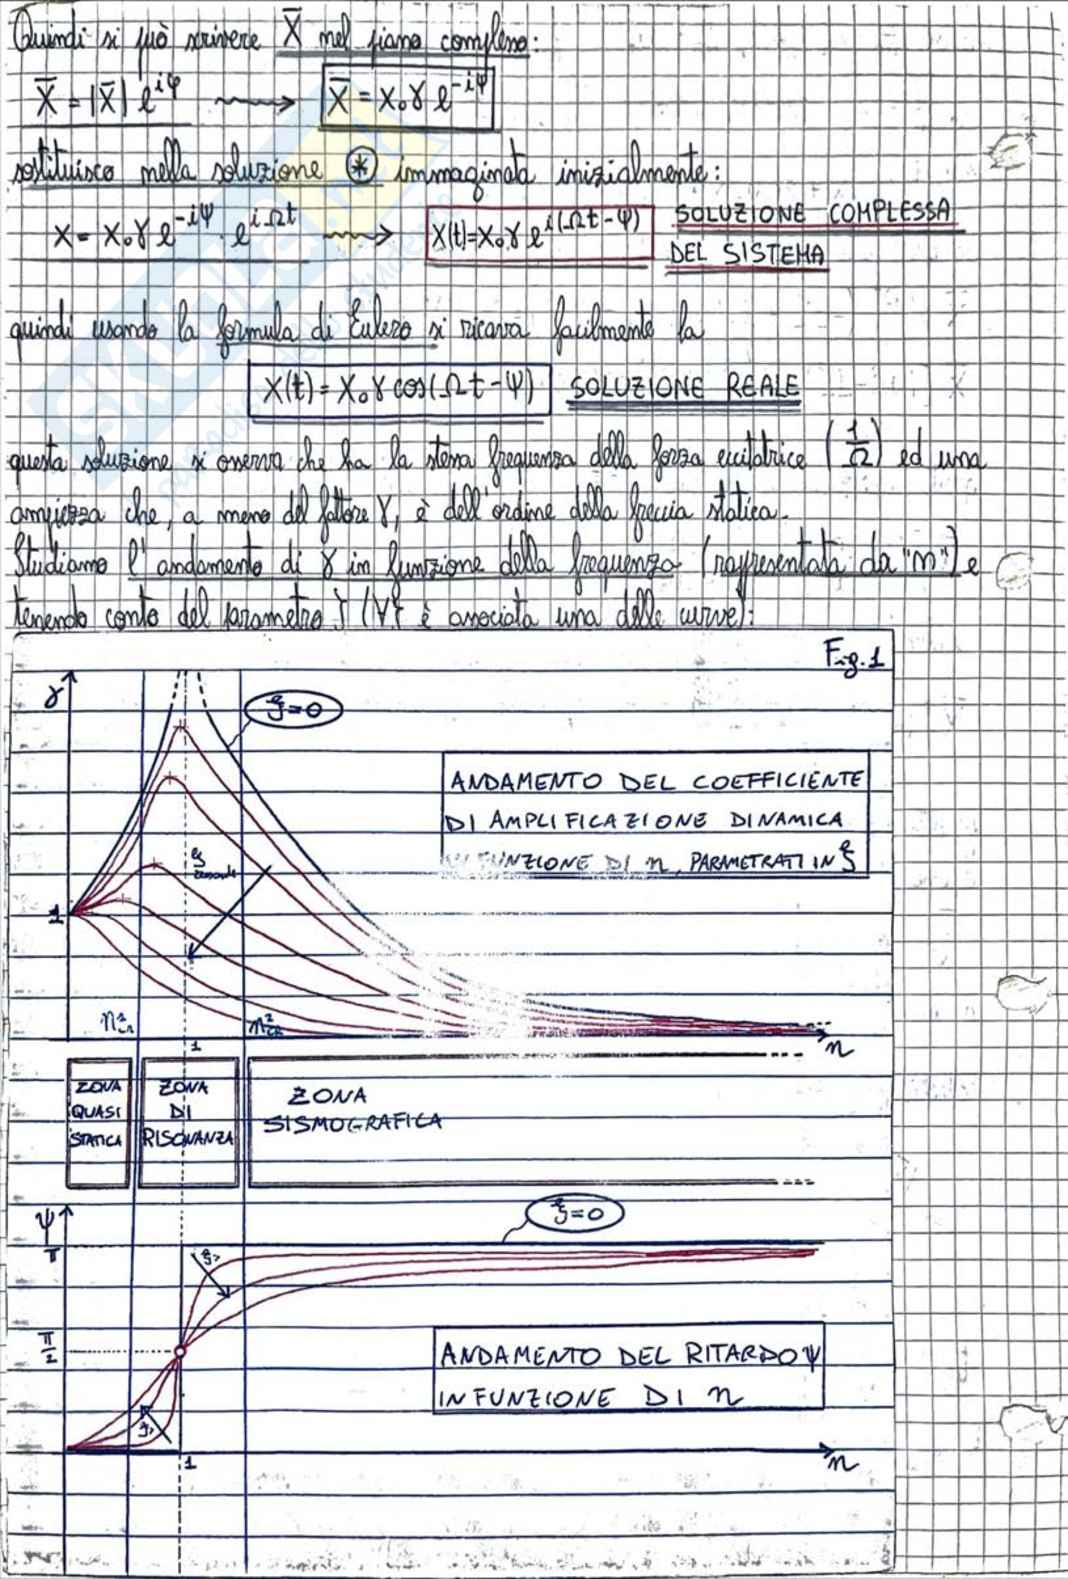 Quindi si può scrivere X̄ nel piano complesso:
X̄ = |X̄| e^{iφ} ⟶ X̄ = X₀γ e^{-iψ}
sostituisco nella soluzione ⊛ immaginata inizialmente:
X = X₀γ e^{-iψ} · e^{iΩt} ⟶ X(t)=X₀γ e^{i(Ωt-ψ)} SOLUZIONE COMPLESSA
DEL SISTEMA
quindi usando la formula di Eulero si ricava facilmente la
X(t) = X₀γ cos(Ωt-ψ) SOLUZIONE REALE
questa soluzione si osserva che ha la stessa frequenza della forza eccitatrice (1/Ω) ed una
ampiezza che, a meno del fattore γ, è dell'ordine della freccia statica.
Studiamo l'andamento di γ in funzione della frequenza (rappresentata da "n") e
tenendo conto del parametro ξ (∀ξ è associata una delle curve):
Fig.1
γ
ξ=0
ANDAMENTO DEL COEFFICIENTE
DI AMPLIFICAZIONE DINAMICA
IN FUNZIONE DI n, PARAMETRATI IN ξ
ξ
1
1
n
ZONA
QUASI
STATICA
ZONA
DI
RISONANZA
ZONA
SISMOGRAFICA
ψ
π
ξ=0
ξ>
π/2
ANDAMENTO DEL RITARDO ψ
IN FUNZIONE DI n
ξ>
1
n